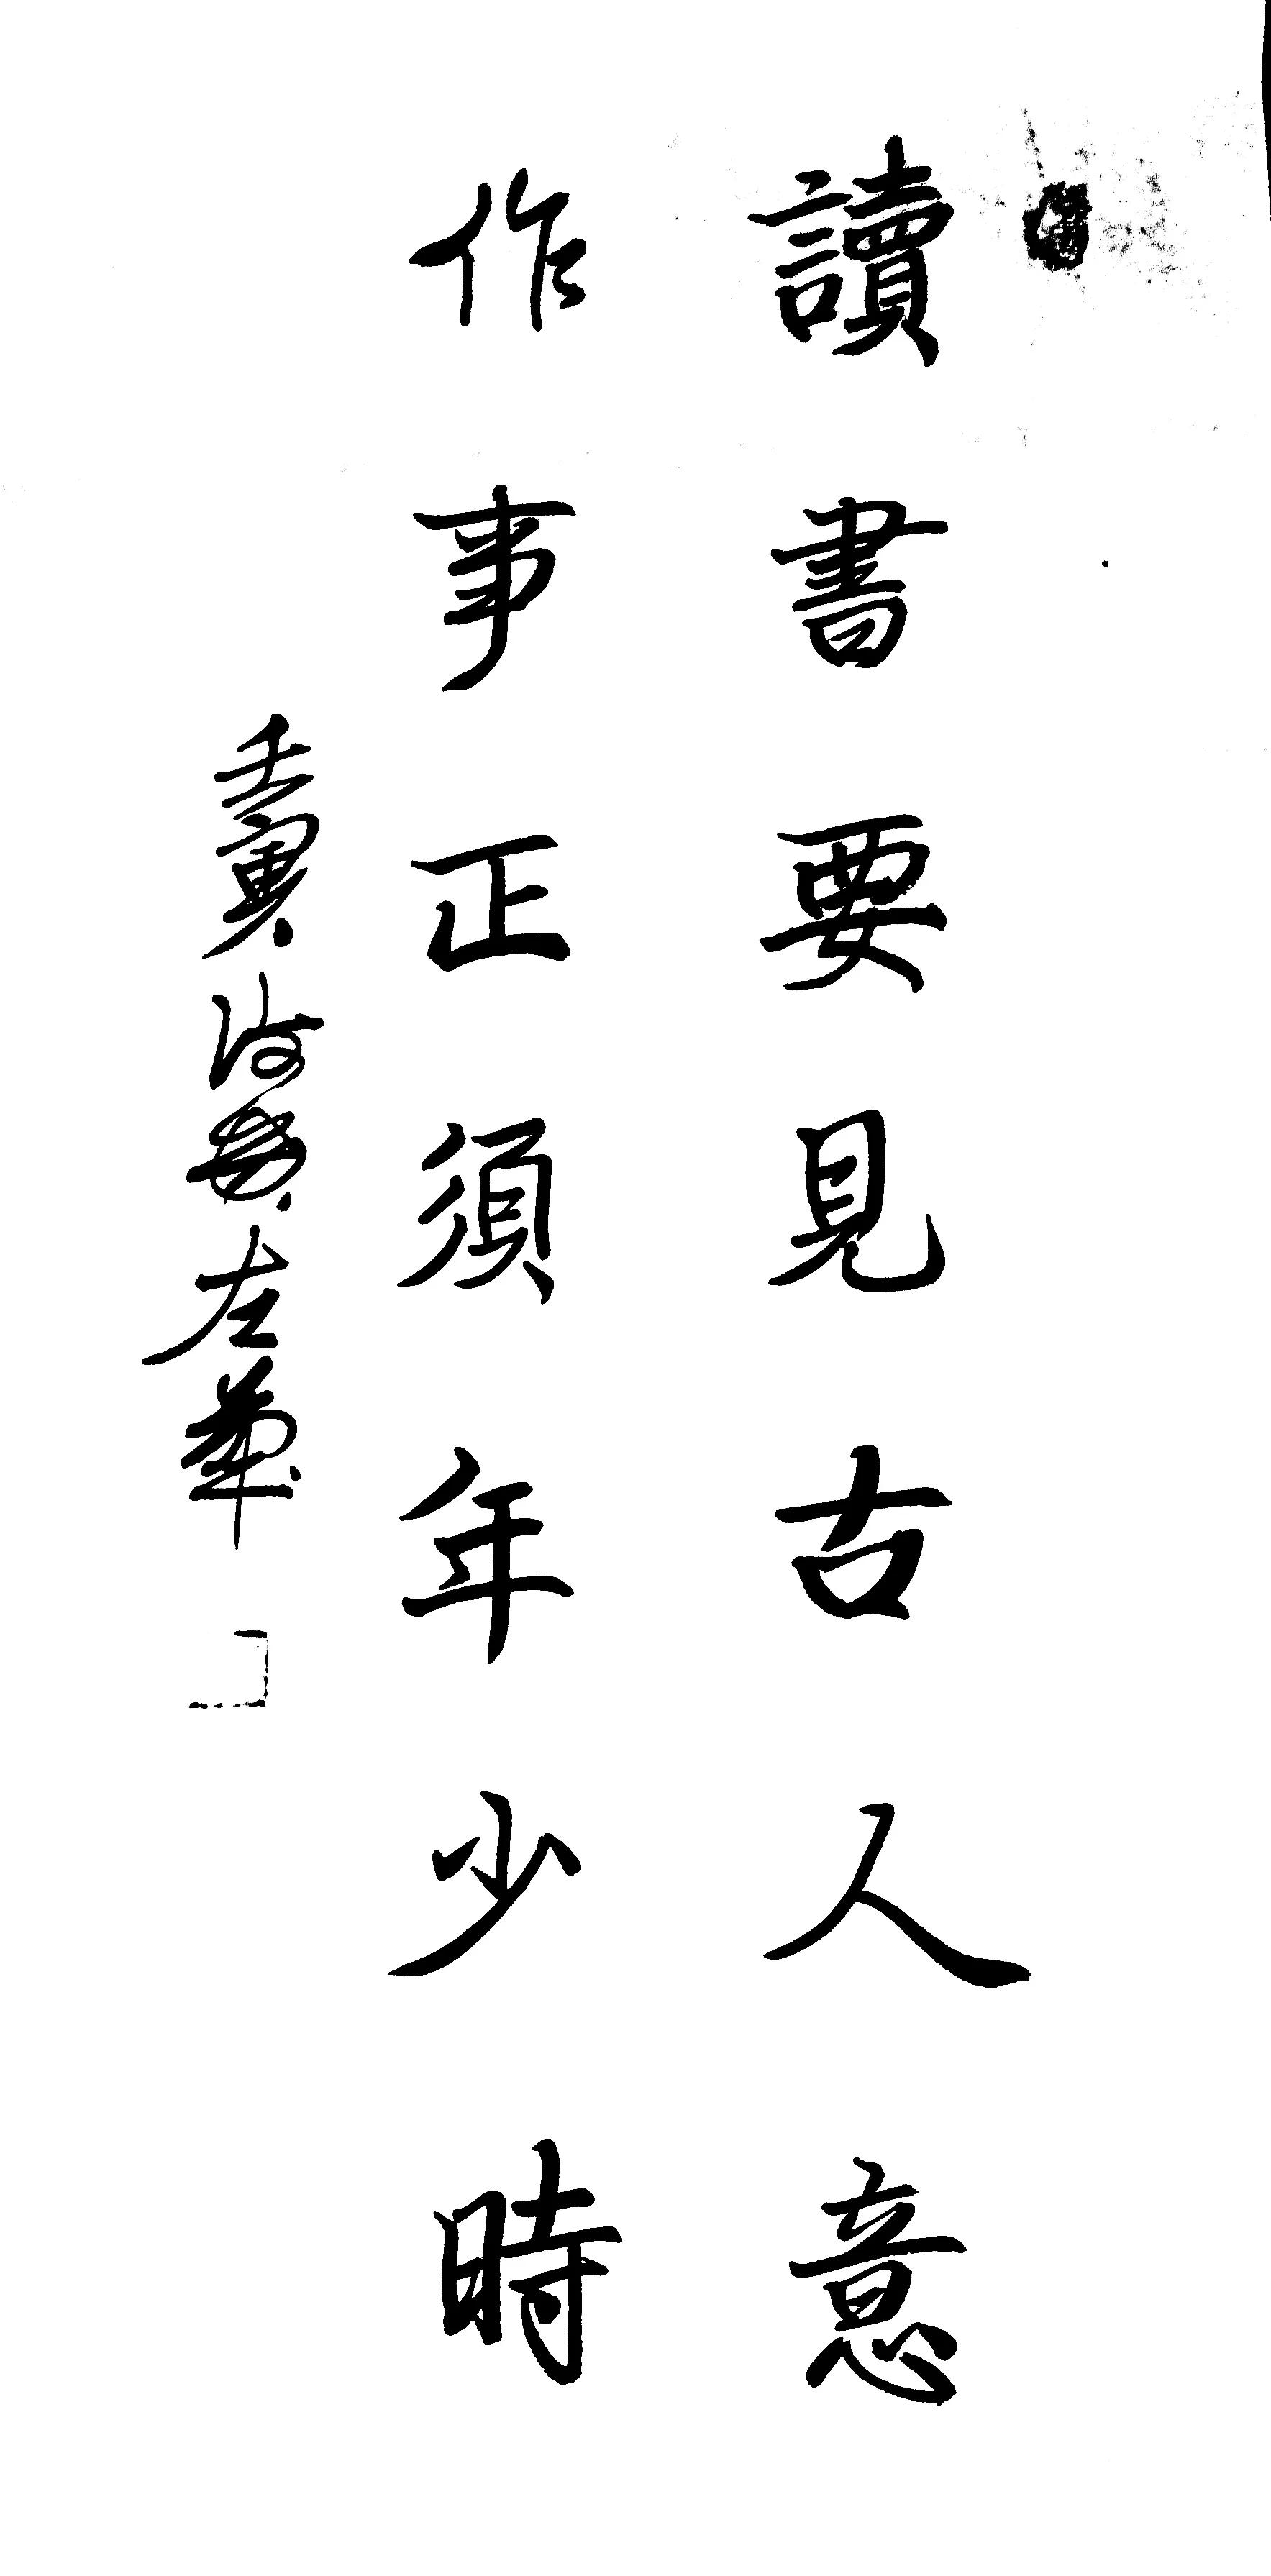 讀書要見古人意
作事正須年少時
壬寅海蘭左華